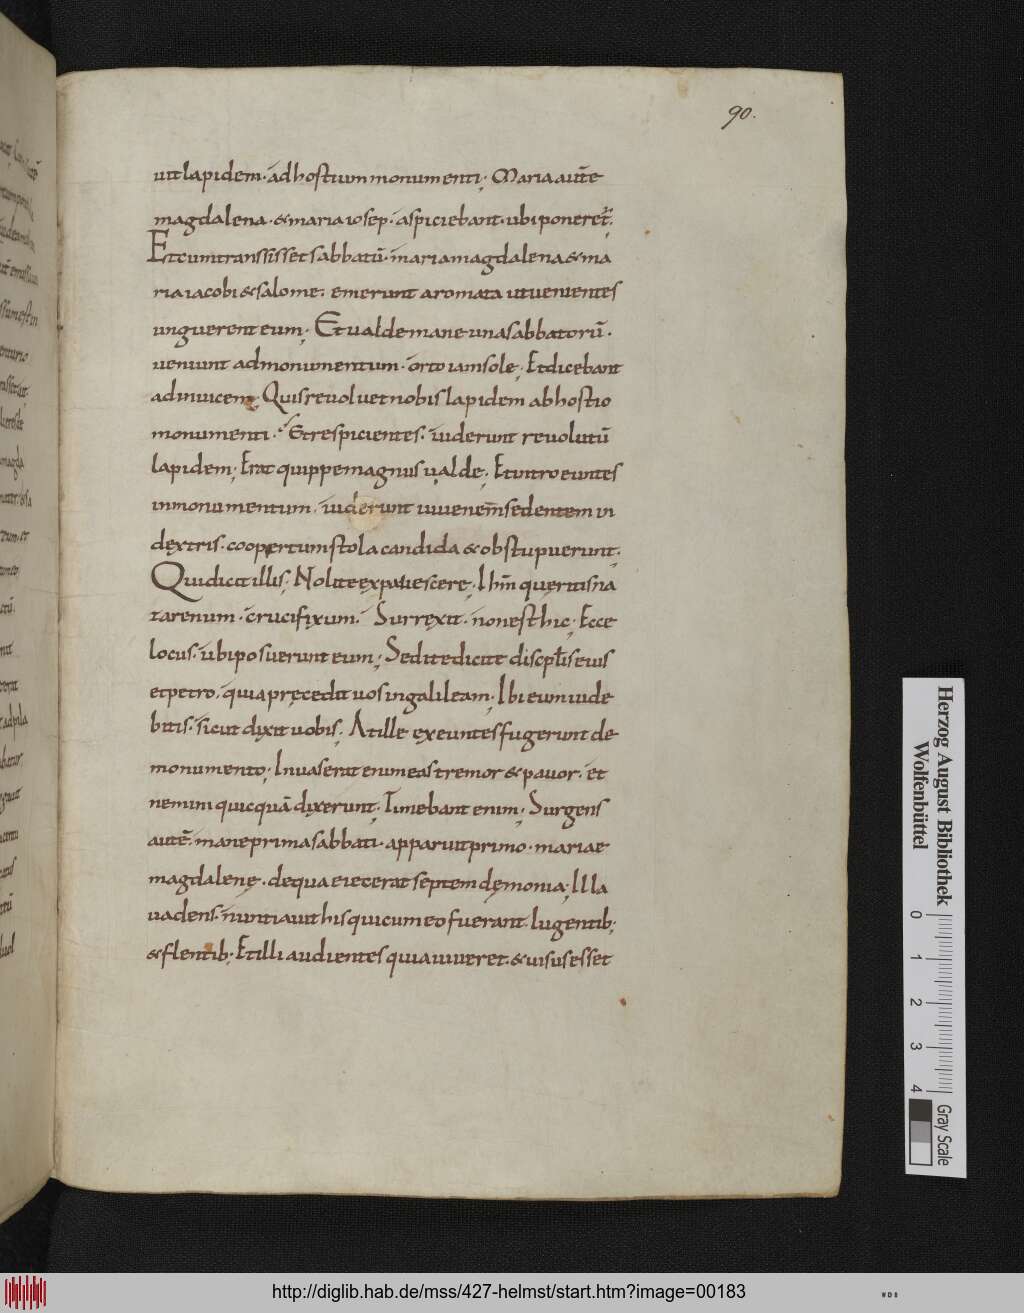 90.
uit lapidem· ad hostium monumenti;· Maria autē
magdalena· & maria ioseph· aspiciebant· ubi poneret̄;
Et cum transsisset sabbatū· maria magdalena & ma
ria iacobi & salome· emerunt aromata ut uenientes
unguerent eum;· Et ualde mane una sabbatorū·
ueniunt ad monumentum· orto iam sole;· Et dicebant
ad inuicem;· Quis reuoluet nobis lapidem ab hostio
monumenti· Et respicientes· uiderunt reuolutū
lapidem;· Erat quippe magnus ualde;· Et introeuntes
in monumentum· uiderunt iuuenem̄ sedentem in
dextris· coopertum stola candida & obstupuerunt;·
Qui dicit illis;· Nolite expauescere;· Ihm̄ queritis na
zarenum· crucifixum· Surrexit· non est hic;· Ecce
locus· ubi posuerunt eum;· Sed ite dicite discipłis eius
et petro· quia pręcedit uos in galileam;· Ibi eum uide
bitis· sicut dixit uobis;· At ille exeuntes fugerunt de
monumento;· Inuaserat enim eas tremor & pauor· et
nemini quicquā dixerunt;· Timebant enim;· Surgens
autē mane prima sabbati· apparuit primo· mariae
magdalenę· de qua eiecerat septem demonia;· Illa
uadens· nuntiauit his qui cum eo fuerant· lugentib;
& flentib;· Et illi audientes quia uiueret· & uisus esset
Herzog August Bibliothek
Wolfenbüttel
0 1 2 3 4
Gray Scale
http://diglib.hab.de/mss/427-helmst/start.htm?image=00183